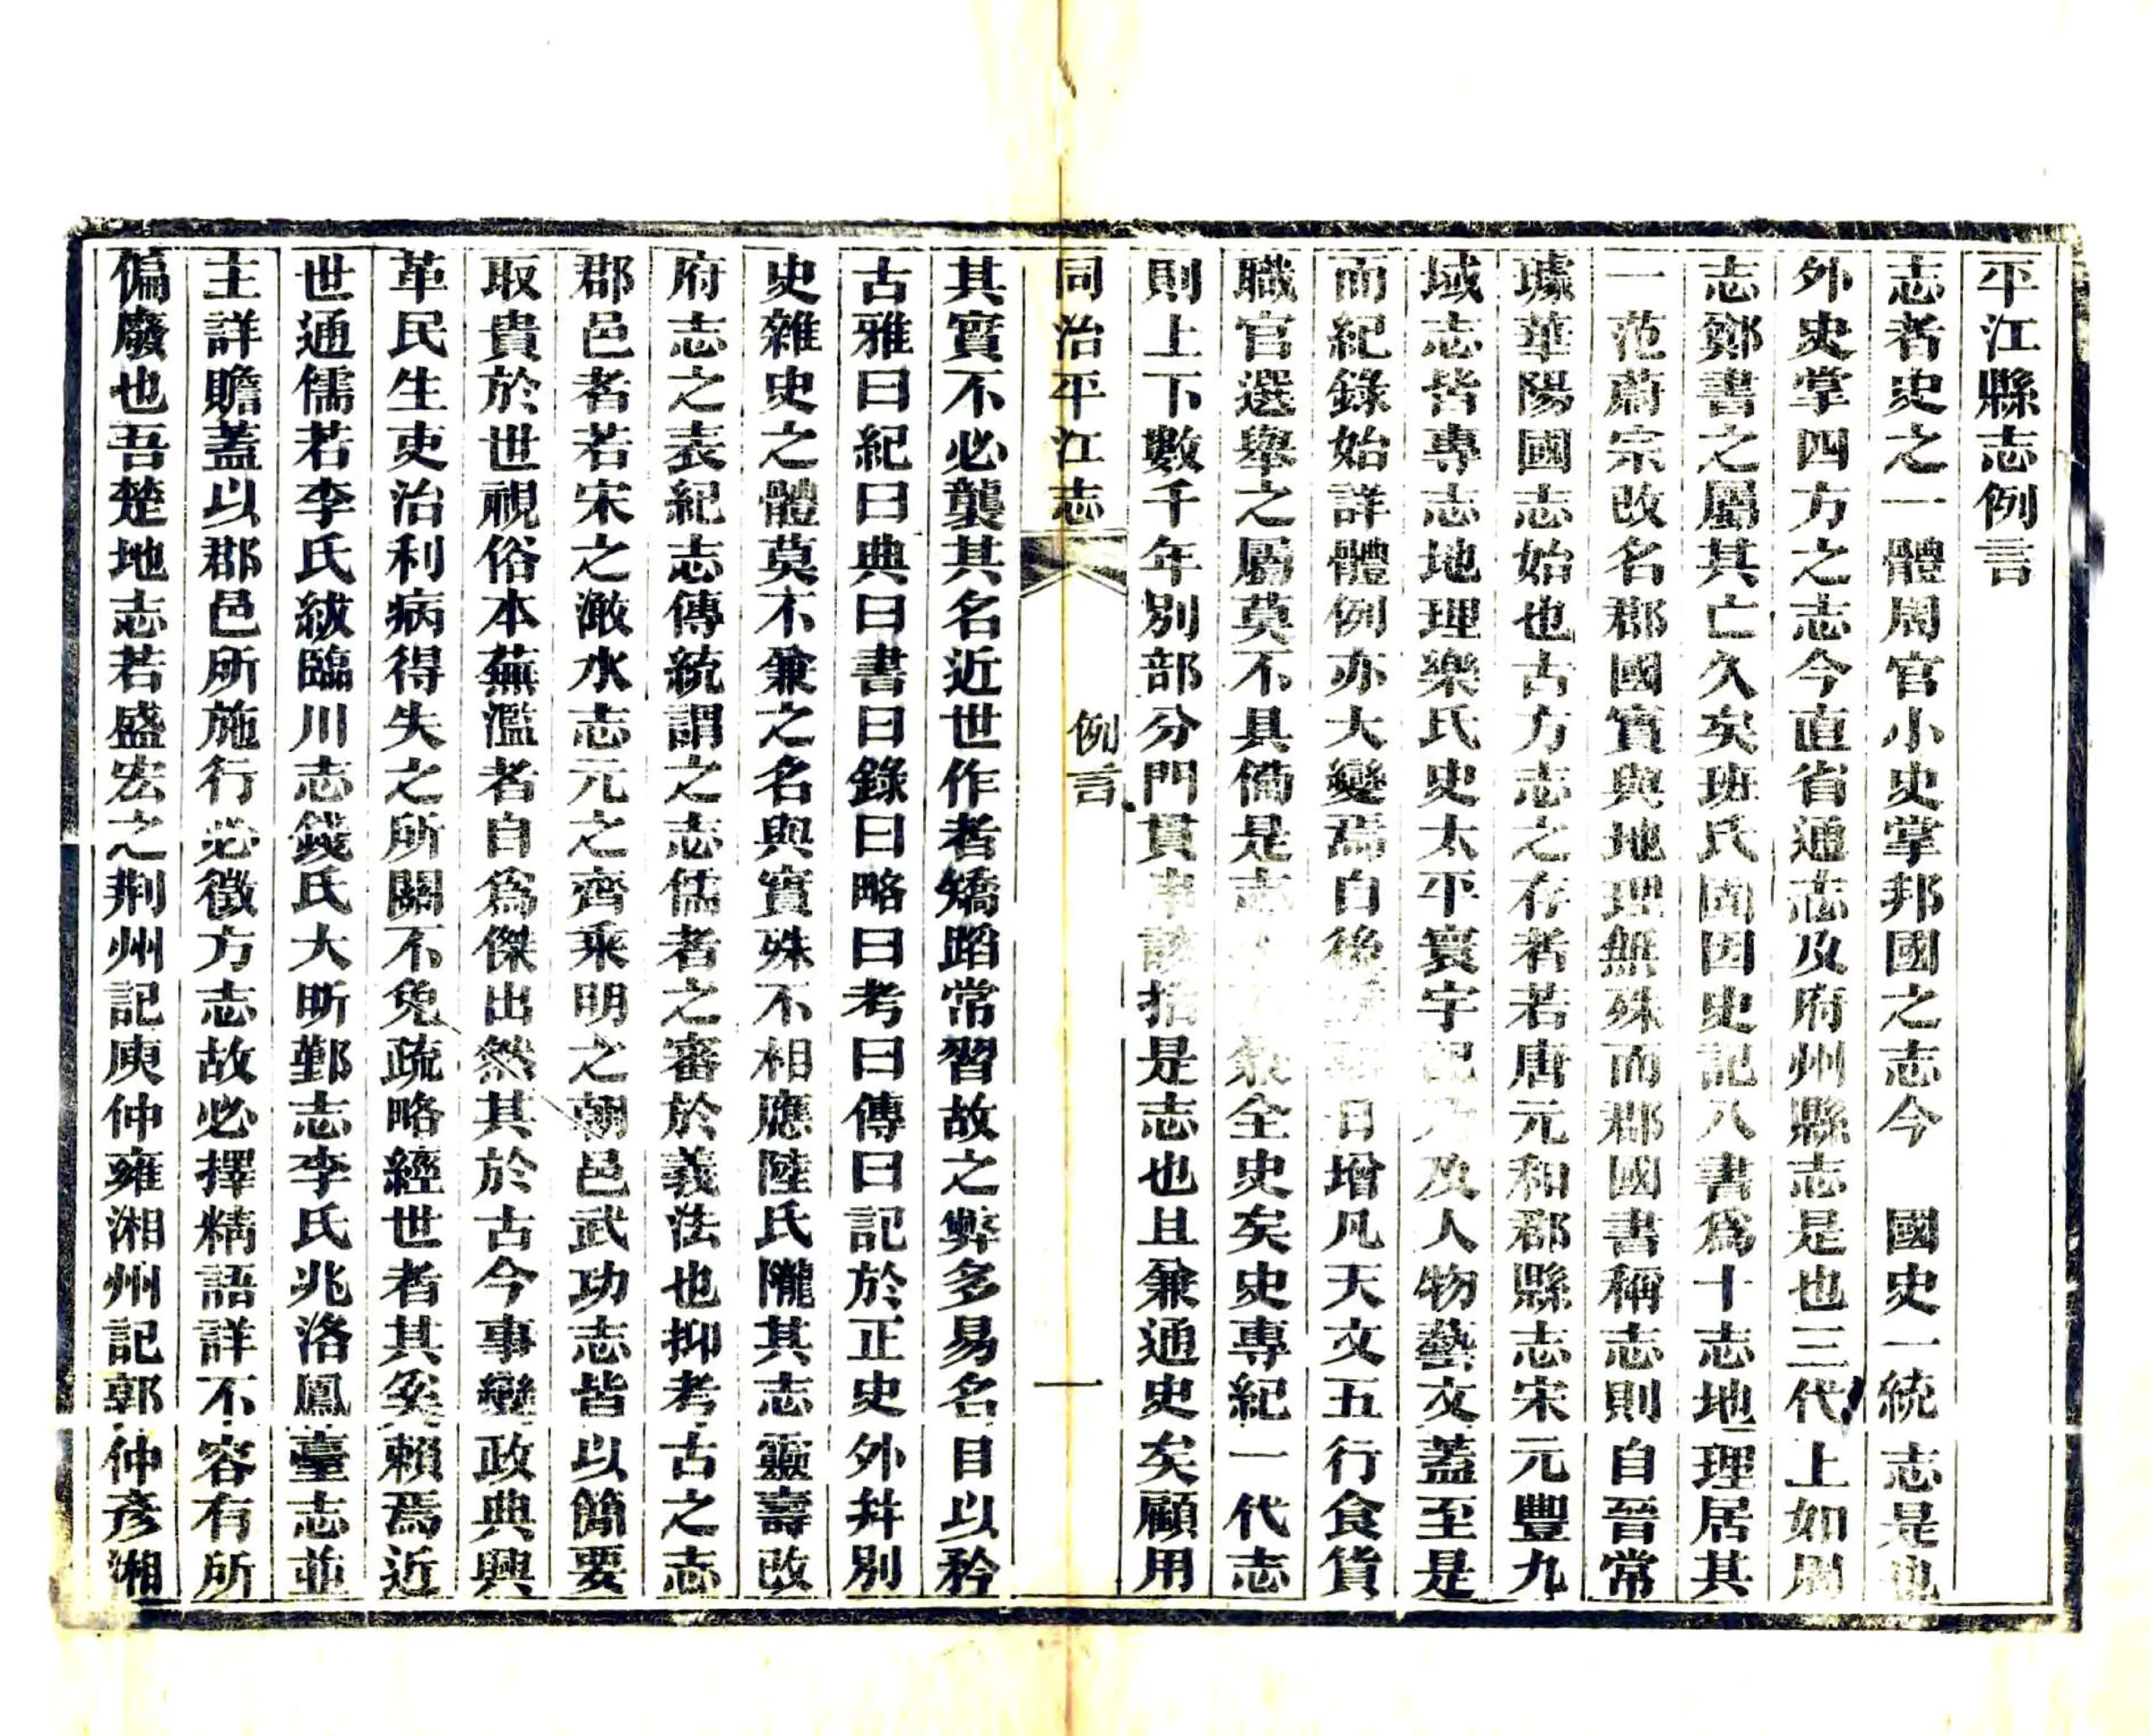 平江縣志例言
志者史之一體周官小史掌邦國之志今　國史一統志是也
外史掌四方之志今直省通志及府州縣志是也三代上如周
志鄭書之屬其亡久矣班氏固因史記八書爲十志地理居其
一范蔚宗改名郡國實與地理無殊而郡國書稱志則自晉常
璩華陽國志始也古方志之存者若唐元和郡縣志宋元豐九
域志皆專志地理樂氏史太平寰宇記乃及人物藝文蓋至是
而紀錄始詳體例亦大變焉自後日增凡天文五行食貨
職官選舉之屬莫不具備是志兼全史矣史專紀一代志
則上下數千年別部分門貫串該括是志也且兼通史矣顧用
同治平江志　例言　一
其實不必襲其名近世作者矯蹈常習故之弊多易名目以矜
古雅曰紀曰典曰書曰錄曰略曰考曰傳曰記於正史外幷別
史雜史之體莫不兼之名與實殊不相應陸氏隴其志靈壽改
府志之表紀志傳統謂之志儒者之審於義法也抑考古之志
郡邑者若宋之澉水志元之齊乘明之朝邑武功志皆以簡要
取貴於世視俗本蕪濫者自爲傑出然其於古今事變政典興
革民生吏治利病得失之所關不免疏略經世者其奚賴焉近
世通儒若李氏紱臨川志錢氏大昕鄞志李氏兆洛鳳臺志並
主詳贍蓋以郡邑所施行必徵方志故必擇精語詳不容有所
偏廢也吾楚地志若盛宏之荆州記庾仲雍湘州記郭仲彥湘